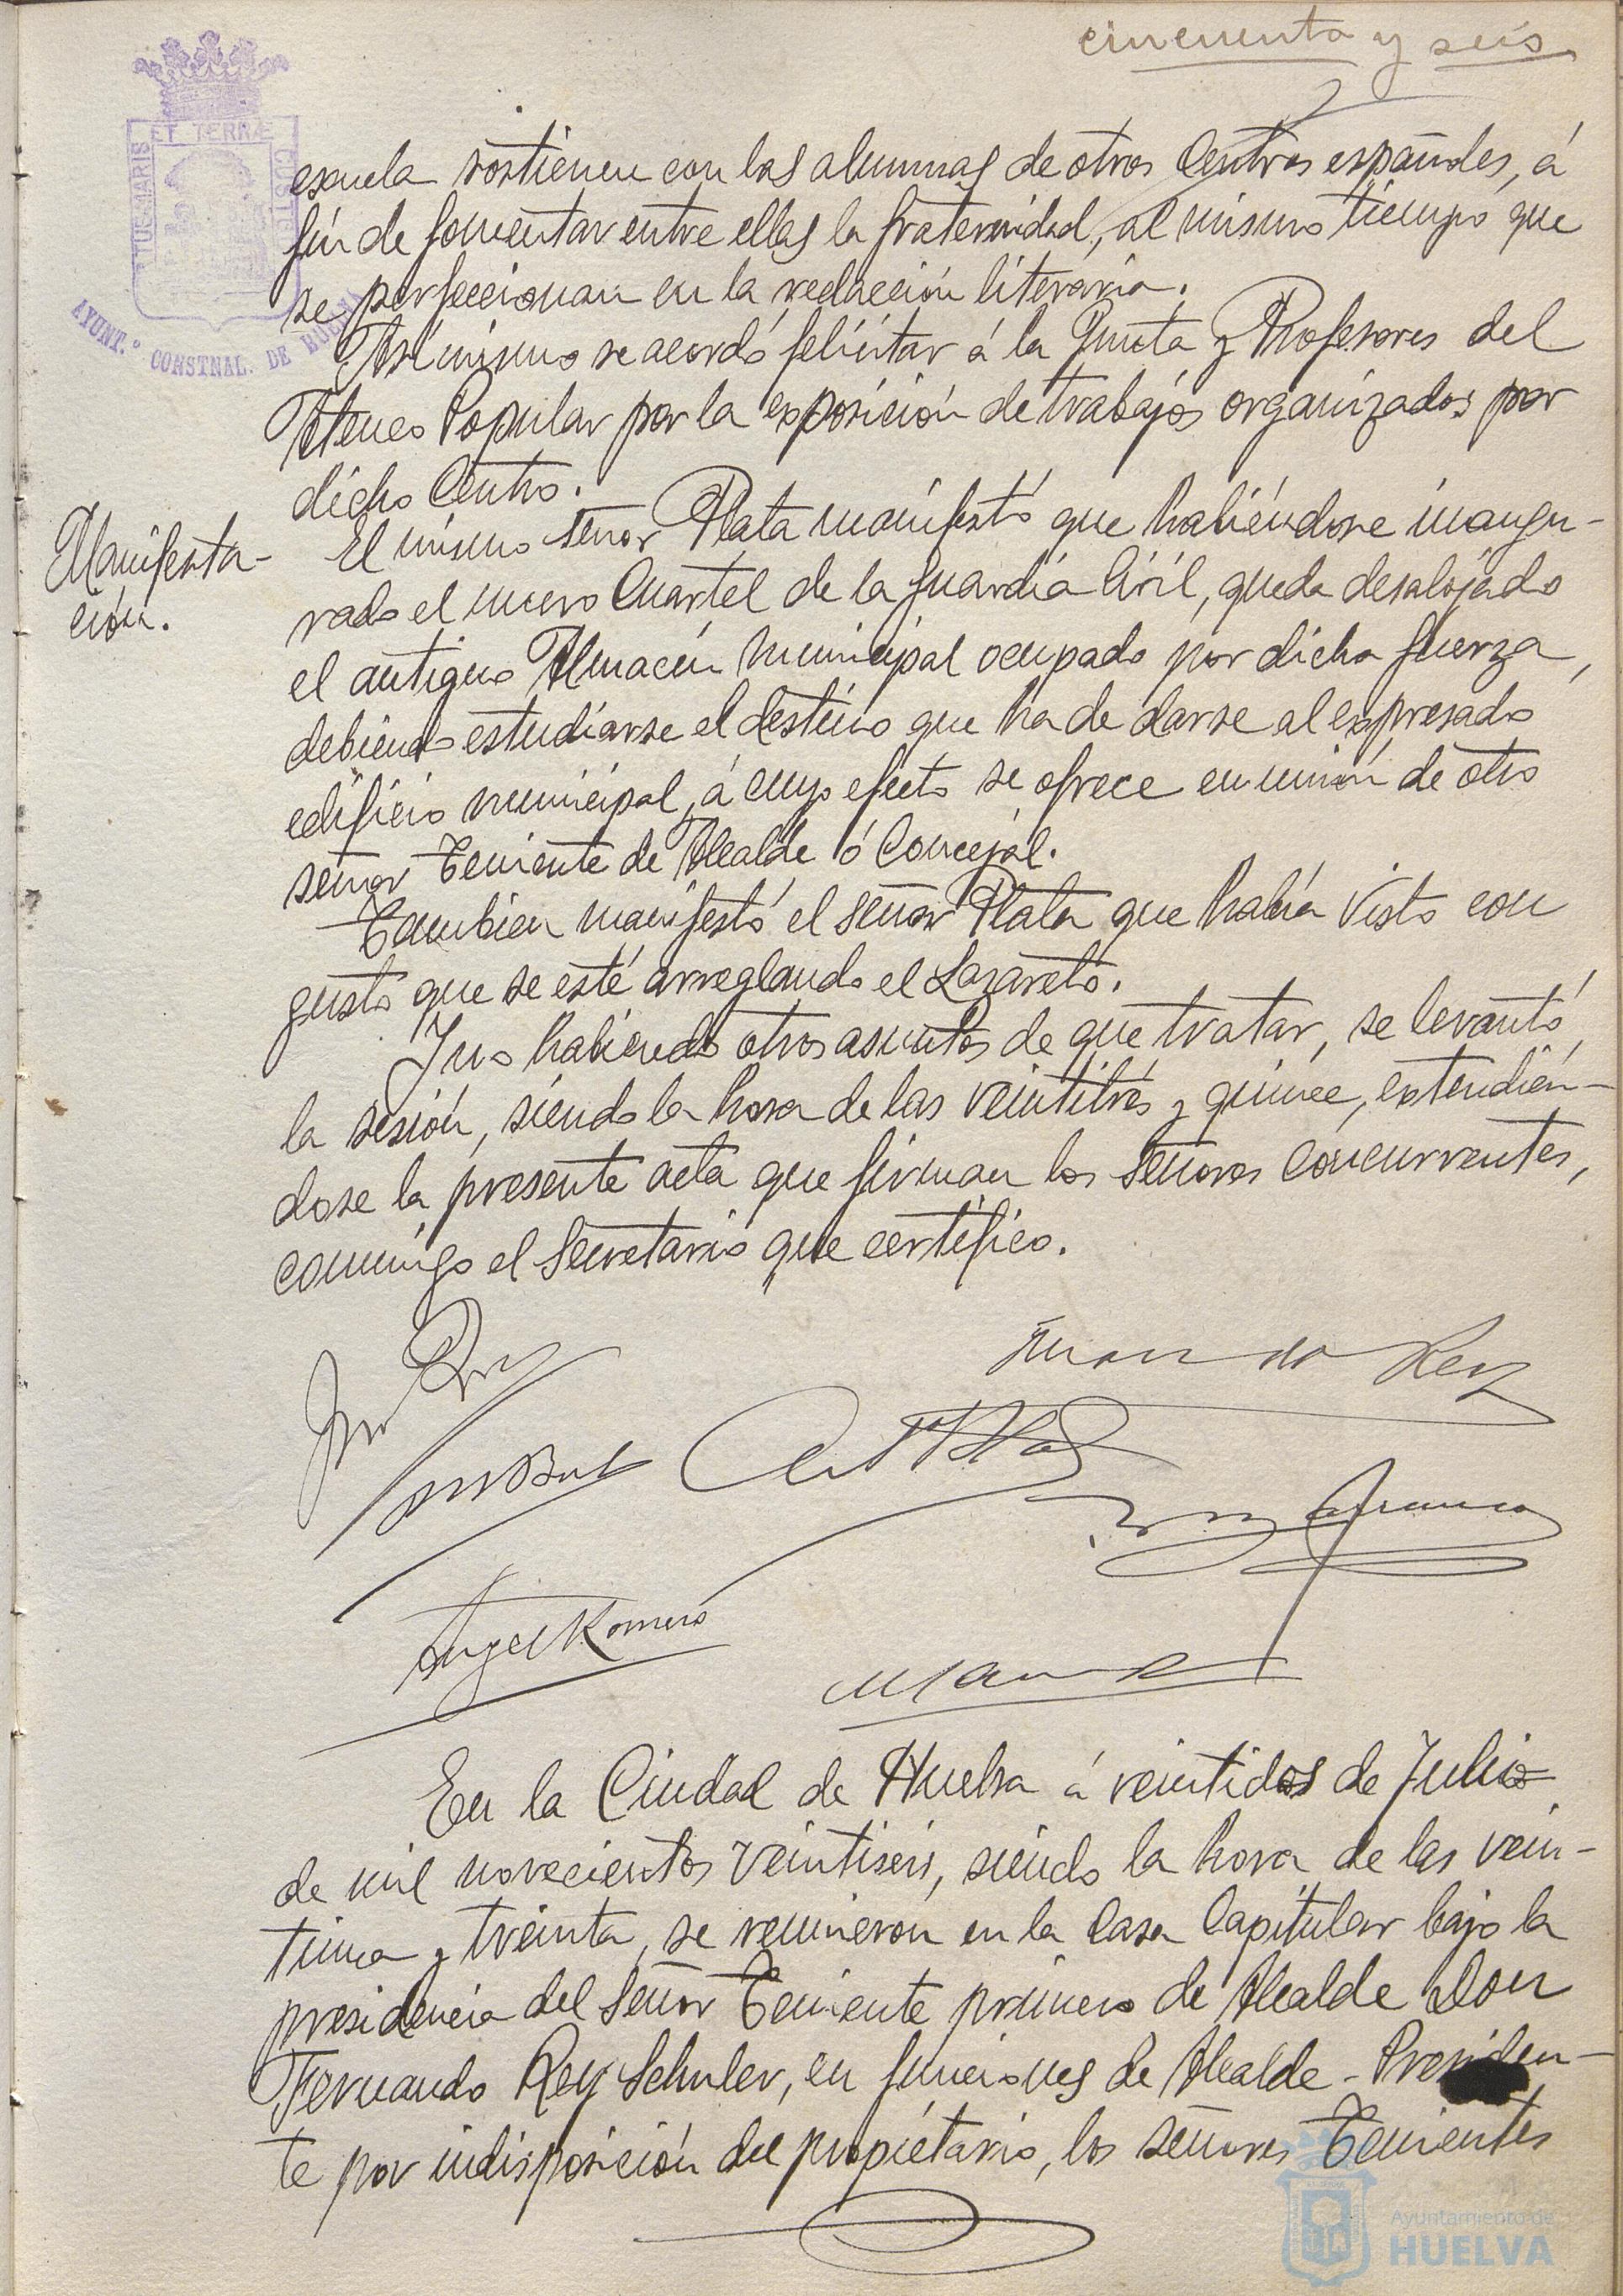 cincuenta y seis
ET TERRÆ
TUS MARIS
CUSTO
AYUNT.º CONSTNAL. DE HUELVA
escuela sostienen con las alumnas de otros Centros españoles, á
fin de fomentar entre ellas la fraternidad, al mismo tiempo que
se perfeccionan en la redacción literaria.
Asímismo se acordó felicitar á la Junta y Profesores del
Ateneo Popular por la exposición de trabajos organizados por
dicho Centro.
Manifesta-
ción.
El mismo señor Plata manifestó que habiéndose inaugu-
rado el nuevo Cuartel de la Guardia Civil, queda desalojado
el antiguo Almacén Municipal ocupado por dicha fuerza,
debiendo estudiarse el destino que ha de darse al expresado
edificio municipal, á cuyo efecto se ofrece en unión de otro
señor Teniente de Alcalde ó Concejal.
Tambien manifestó el señor Plata que había visto con
gusto que se esté arreglando el Lazareto.
Y no habiendo otros asuntos de que tratar, se levantó
la sesión, siendo la hora de las veintitrés y quince, extendién-
dose la presente acta que firman los señores concurrentes,
conmigo el Secretario que certifico.
Fernando Rey
Angel Romero
En la Ciudad de Huelva á veintidos de Julio
de mil novecientos veintiseis, siendo la hora de las vein-
tiuna y treinta, se reunieron en la Casa Capitular bajo la
presidencia del Señor Teniente primero de Alcalde Don
Fernando Rey Schuler, en funciones de Alcalde-Presiden-
te por indisposición del propietario, los señores Tenientes
Ayuntamiento de
HUELVA